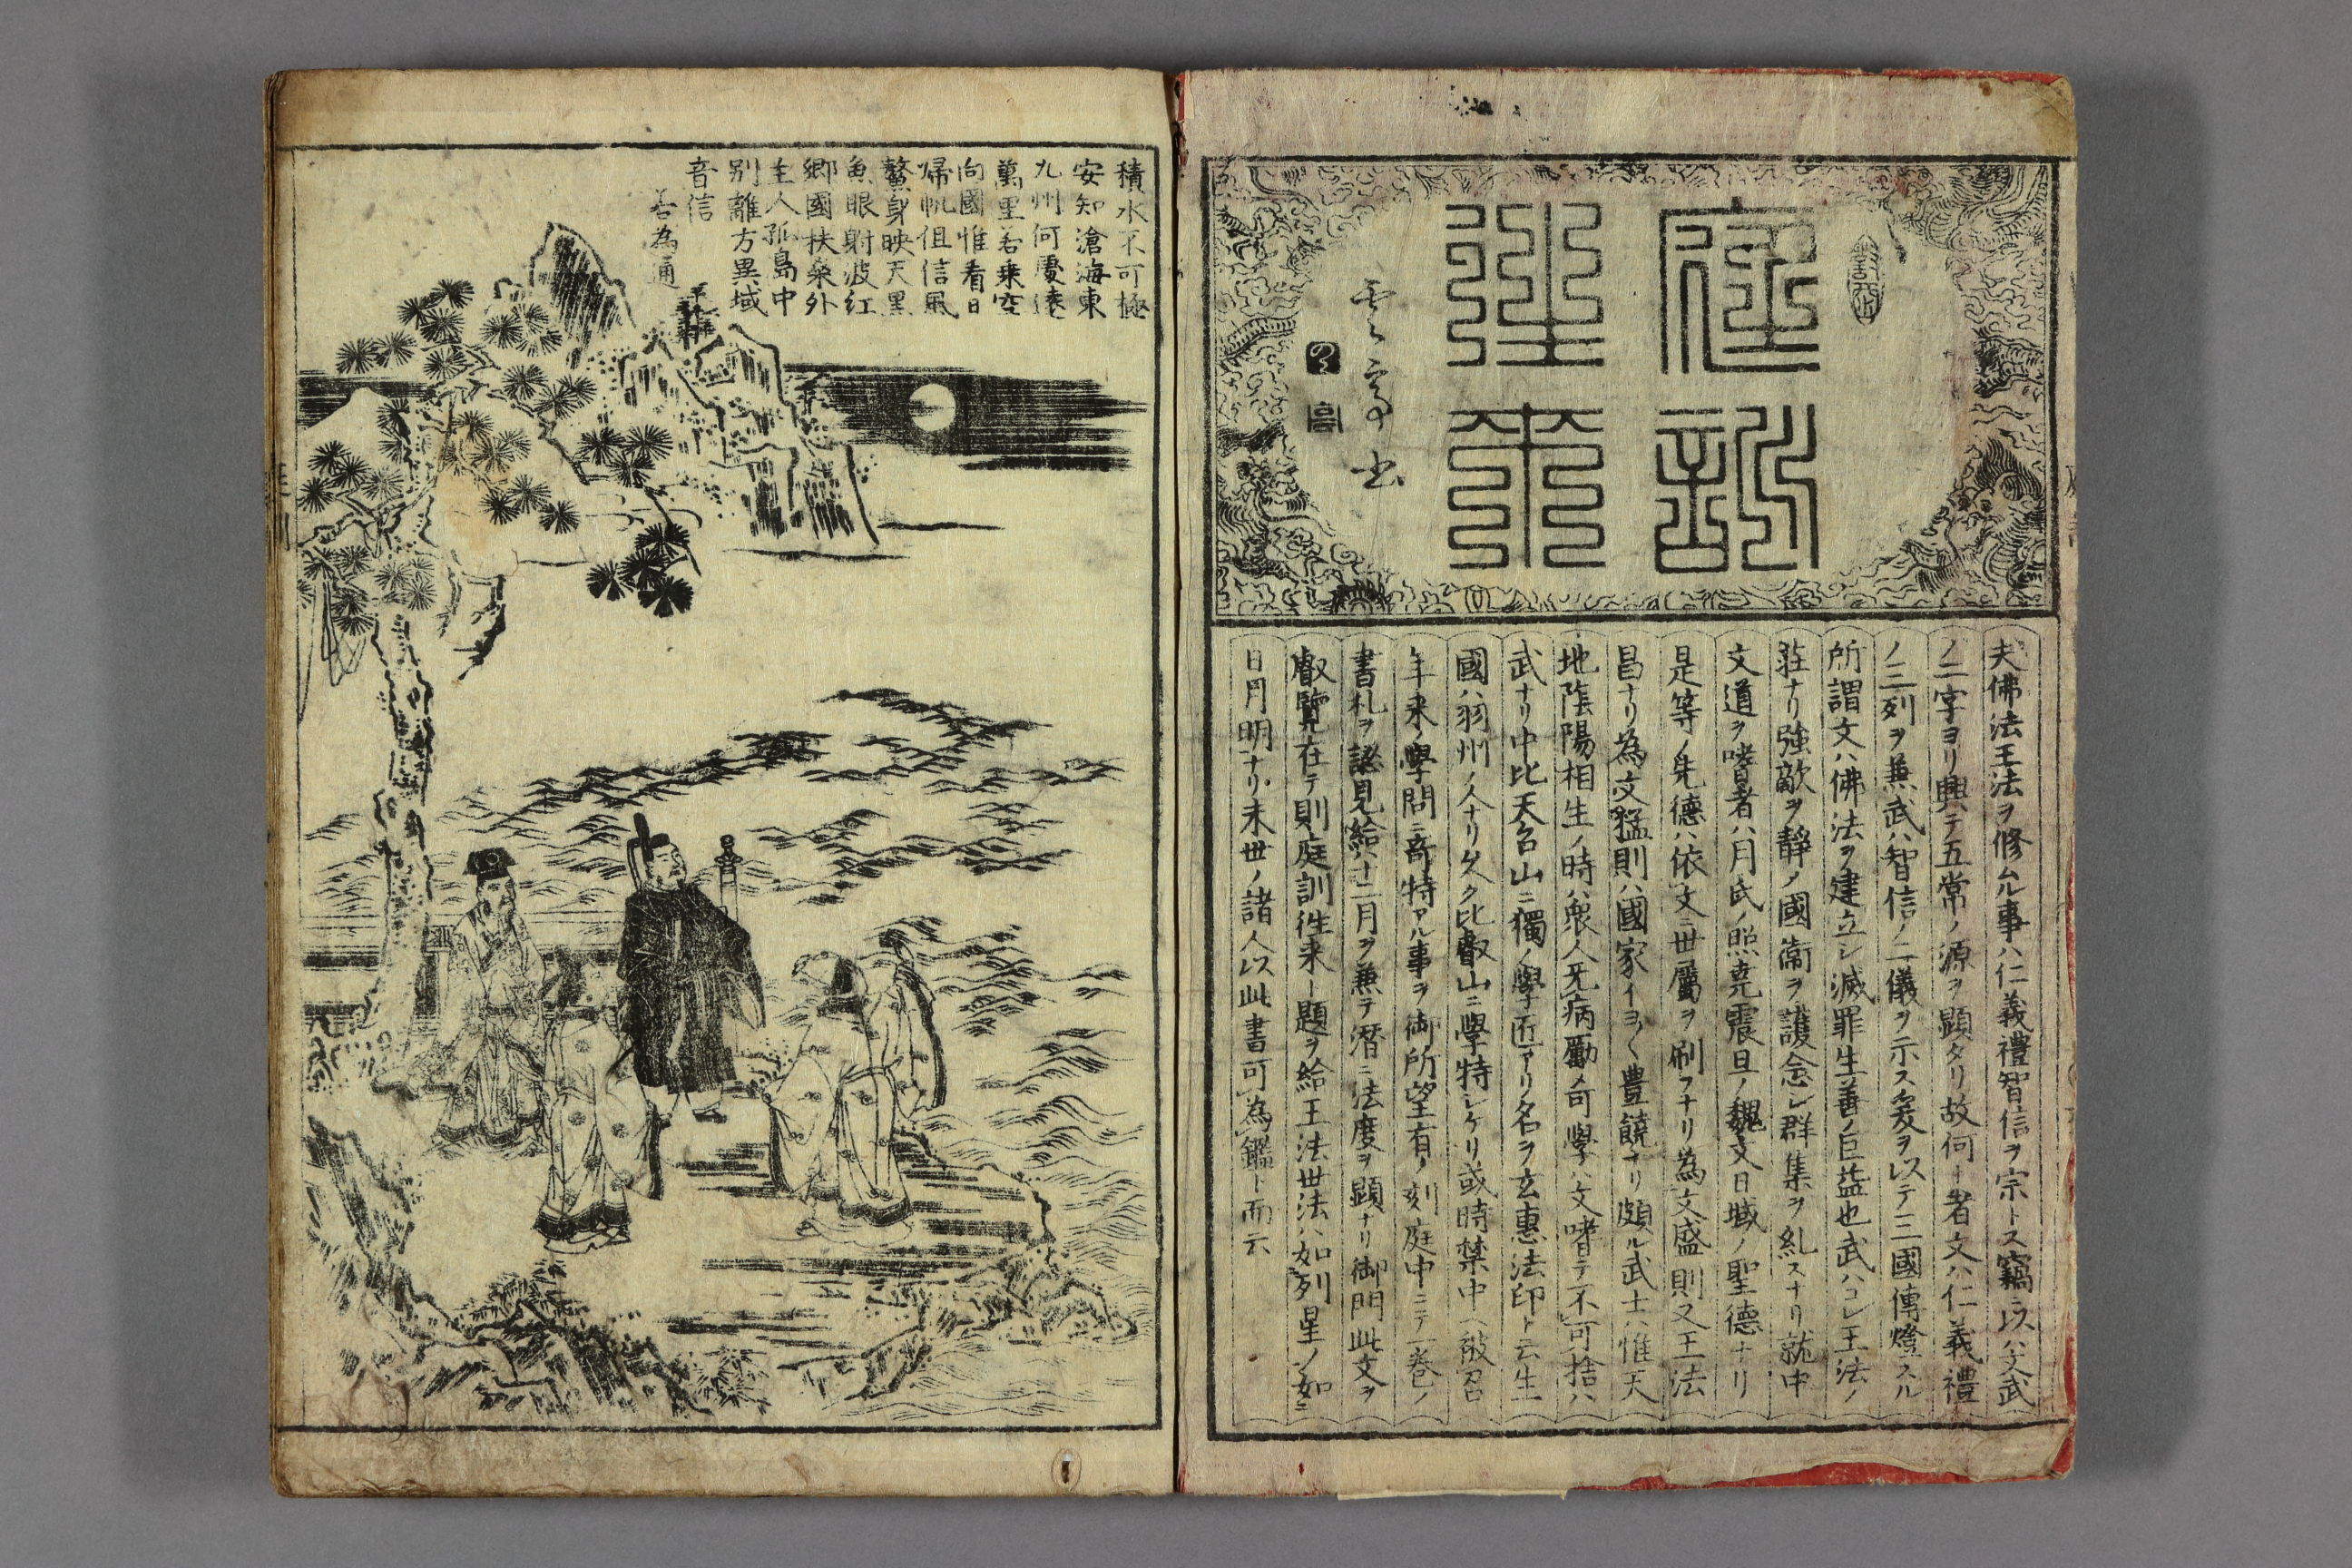 庭訓
往来
夫佛法王法ヲ修ムル事ハ仁義禮智信ヲ宗トス竊ニ以ハ文武
ノ二字ヨリ興テ五常ノ源ヲ顕タリ故何ー者文ハ仁義禮
ノ三列ヲ兼武ハ智信ノ二儀ヲ示ス爰ヲ以テ三國傳燈スル
所謂文ハ佛法ヲ建立シ滅罪生善ノ巨益也武ハコレ王法ノ
荘ナリ強敵ヲ静ノ國衞ヲ護念シ群集ヲ糺スナリ就中
文道ヲ嗜者ハ月氏ノ照堯震旦ノ魏文日域ノ聖德ナリ
是等ノ先德ハ依文ニ世屬ヲ刷フナリ為文盛則又王法
昌ナリ為文猛則ハ國家イヨ〱豊饒ナリ頗ル武士ハ惟天
地陰陽相生ノ時ハ衆人无病勵メ可學ハ文嗜テ不可捨ハ
武ナリ中比天台山ニ獨ノ學匠アリ名ヲ玄惠法印ト云生
國ハ羽州ノ人ナリ久ク比叡山ニ學特シケリ或時禁中ヘ被召
年来ノ學問ニ奇特アル事ヲ御所望有ノ刻庭中ニテ一巻ノ
書札ヲ認見給ハ十二月ヲ兼テ潜ニ法度ヲ顕ナリ御門此文ヲ
叡覽在テ則庭訓往来ー題ヲ給王法世法ハ如列星ノ如ニ
日月明ナリ末世ノ諸人以此書可為鑑ト而云
積水不可極
安知滄海東
九州何處遠
萬里若乗空
向國惟看日
帰帆但信風
鰲身映天黒
魚眼射波紅
郷國扶桒外
主人孤島中
別離方異域
音信
若為通